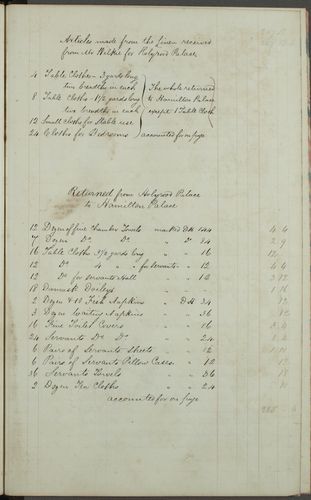 Articles made from the linen received
from Mr Wilkie for Holyrood Palace
4 Table Cloths - 3 yards long
two breadths in each
8 Table Cloths - 1½ yards long
two breadths in each
12 Small cloths for Stable use
The whole returned
to Hamilton Palace
except 1 Table Cloth
24 Cloths for Bedrooms accounted for page
Returned from Holyrood Palace
to Hamilton Palace
12 Dozen fine Chamber Towels marked DH 144
7 Dozen Do Do " Do 84
16 Table Cloths 3½ yards long " " 16
12 Do 4 " " for Servants " 12
12 Do for Servants Hall " 12
18 Damask Doileys " " 18
2 Dozen & 10 Fish Napkins " DH 34
3 Dozen Waiting Napkins " " 36
16 Fine Toilet Covers " " 16
24 Servants Do Do " " 24
6 Pairs of Servants Sheets " " 12
6 Pairs of Servants Pillow Cases " " 12
36 Servants Towels " " 36
2 Dozen Tea Cloths " " 24
accounted for on page